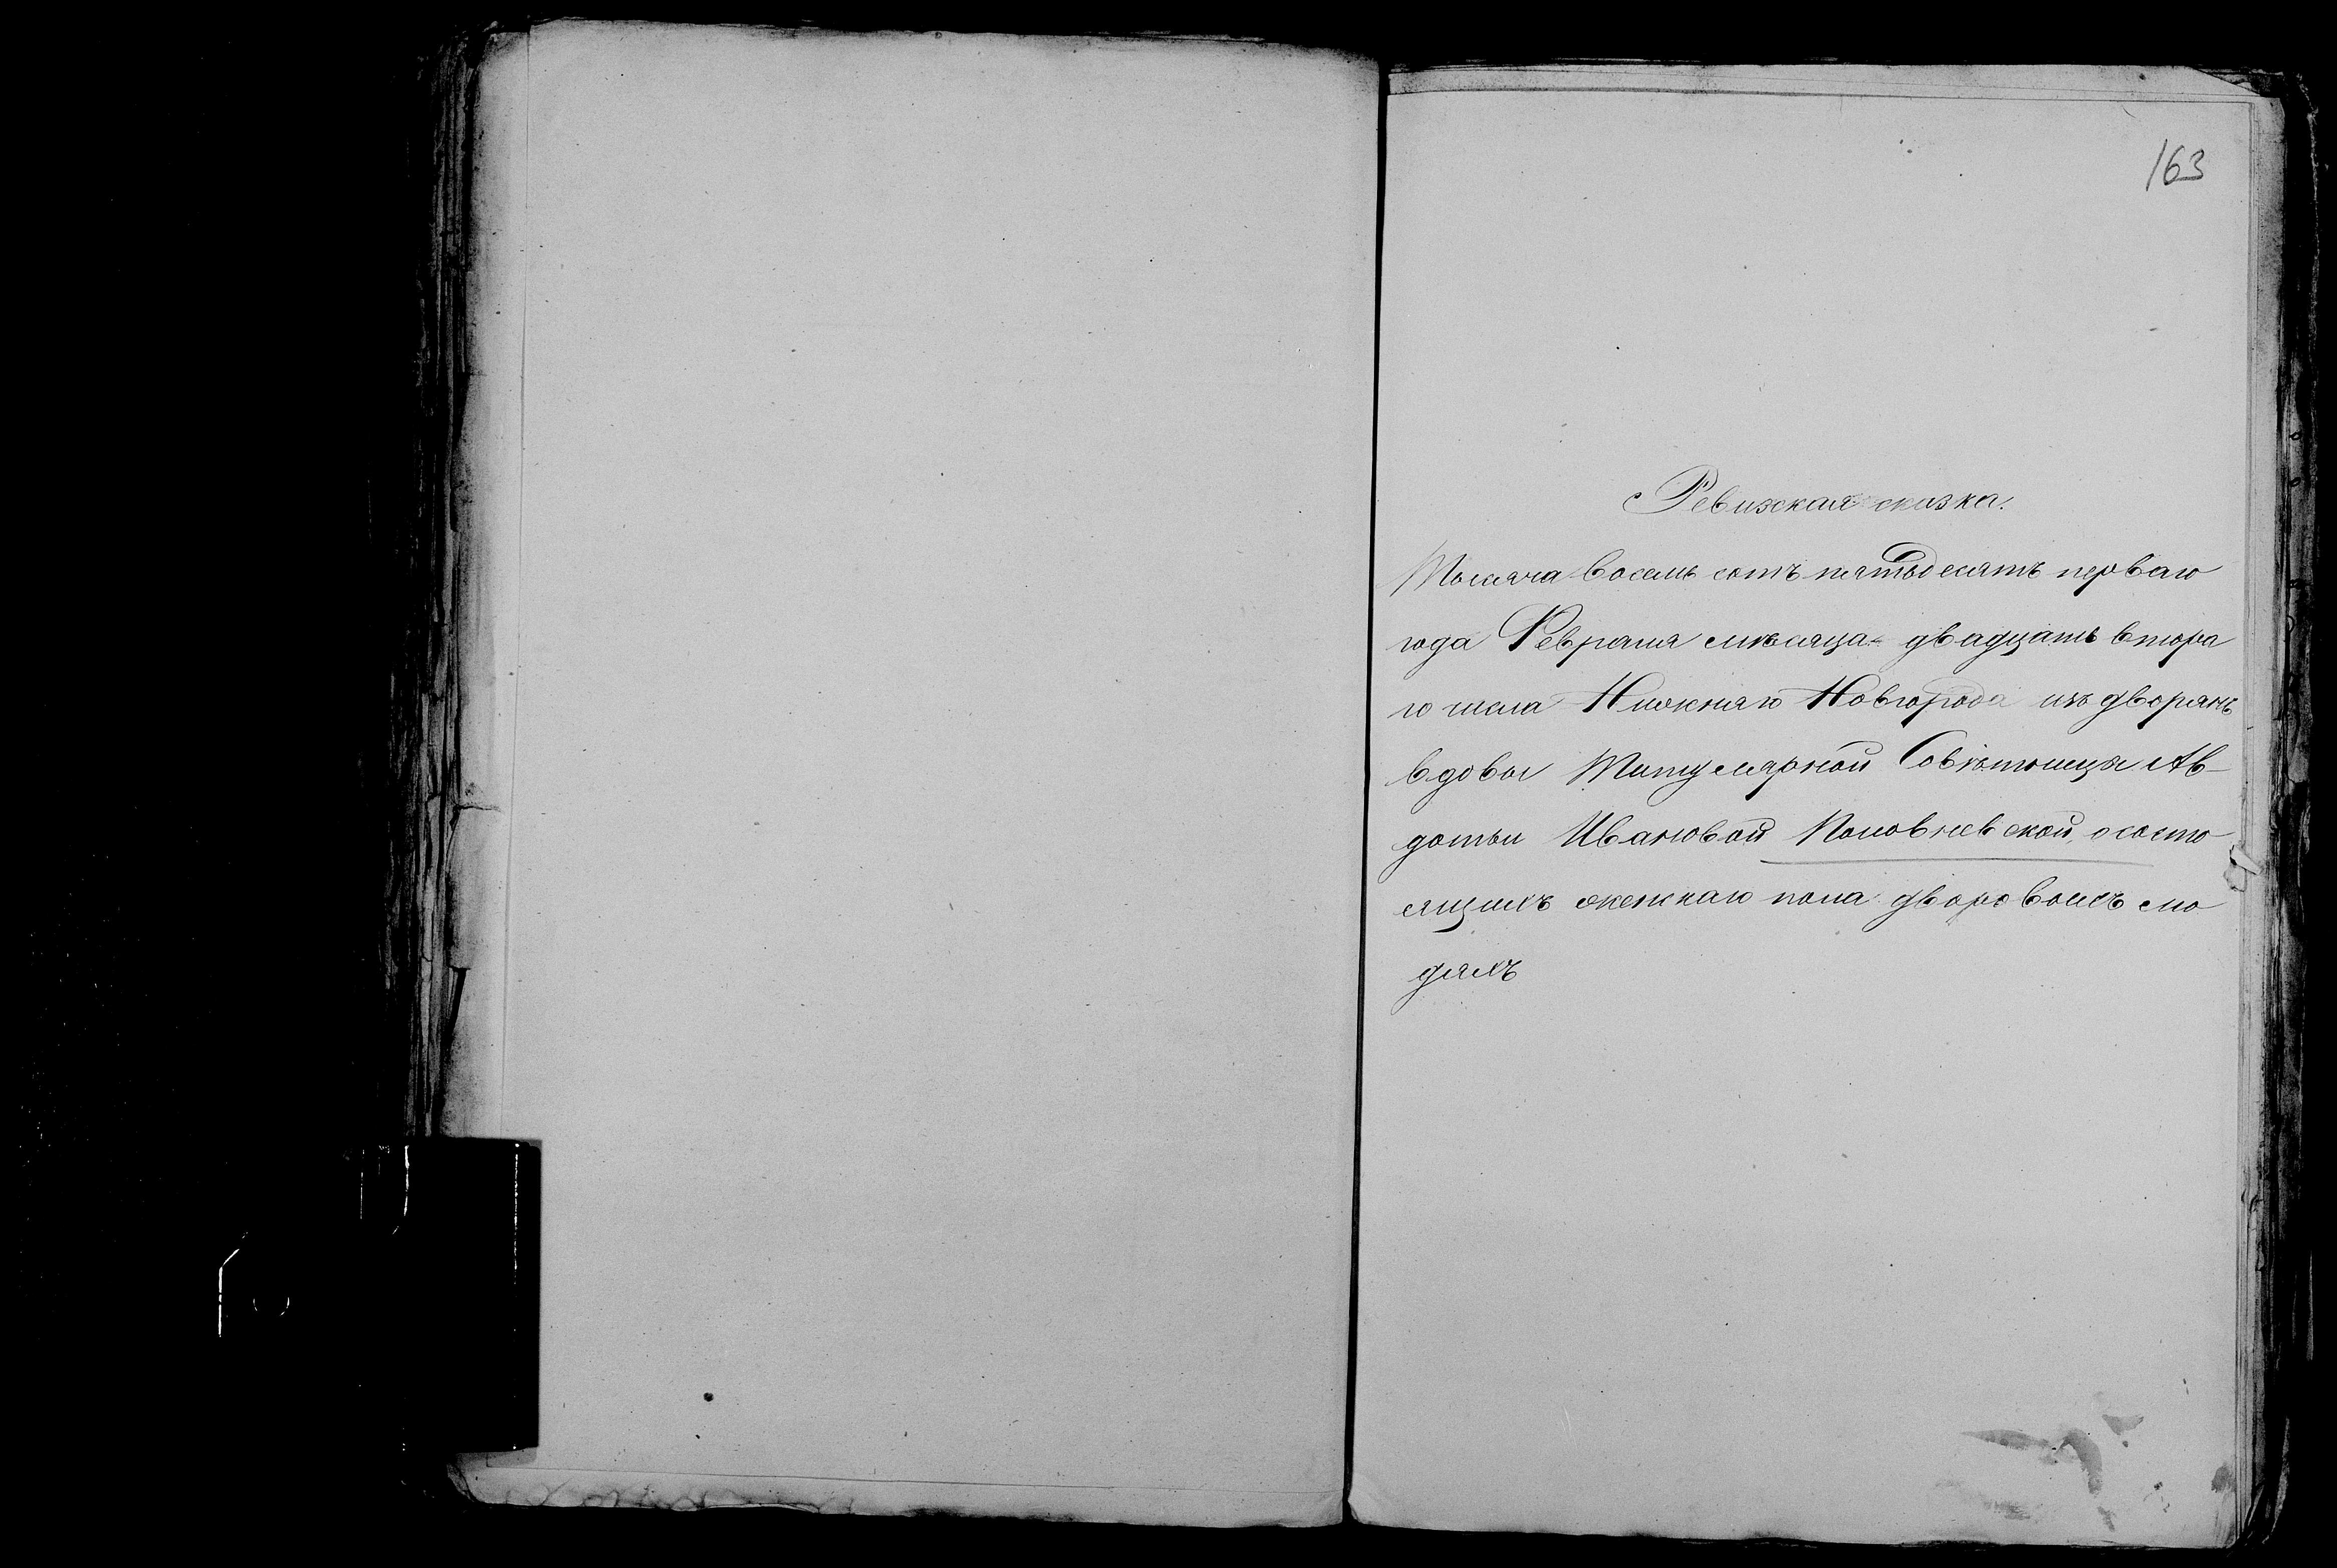 163
Ревижская сказка.
Тысяча восемь сотъ пятьдесятъ перваго
года Февраля мѣсяца двадцать втора
го числа Нижняго Новгорода изъ дворянъ
вдовы Титулярной Совѣтницы Ав-
дотьи Ивановой ососто
ящихъ женскаго пола дворовыхъ лю
дяхъ